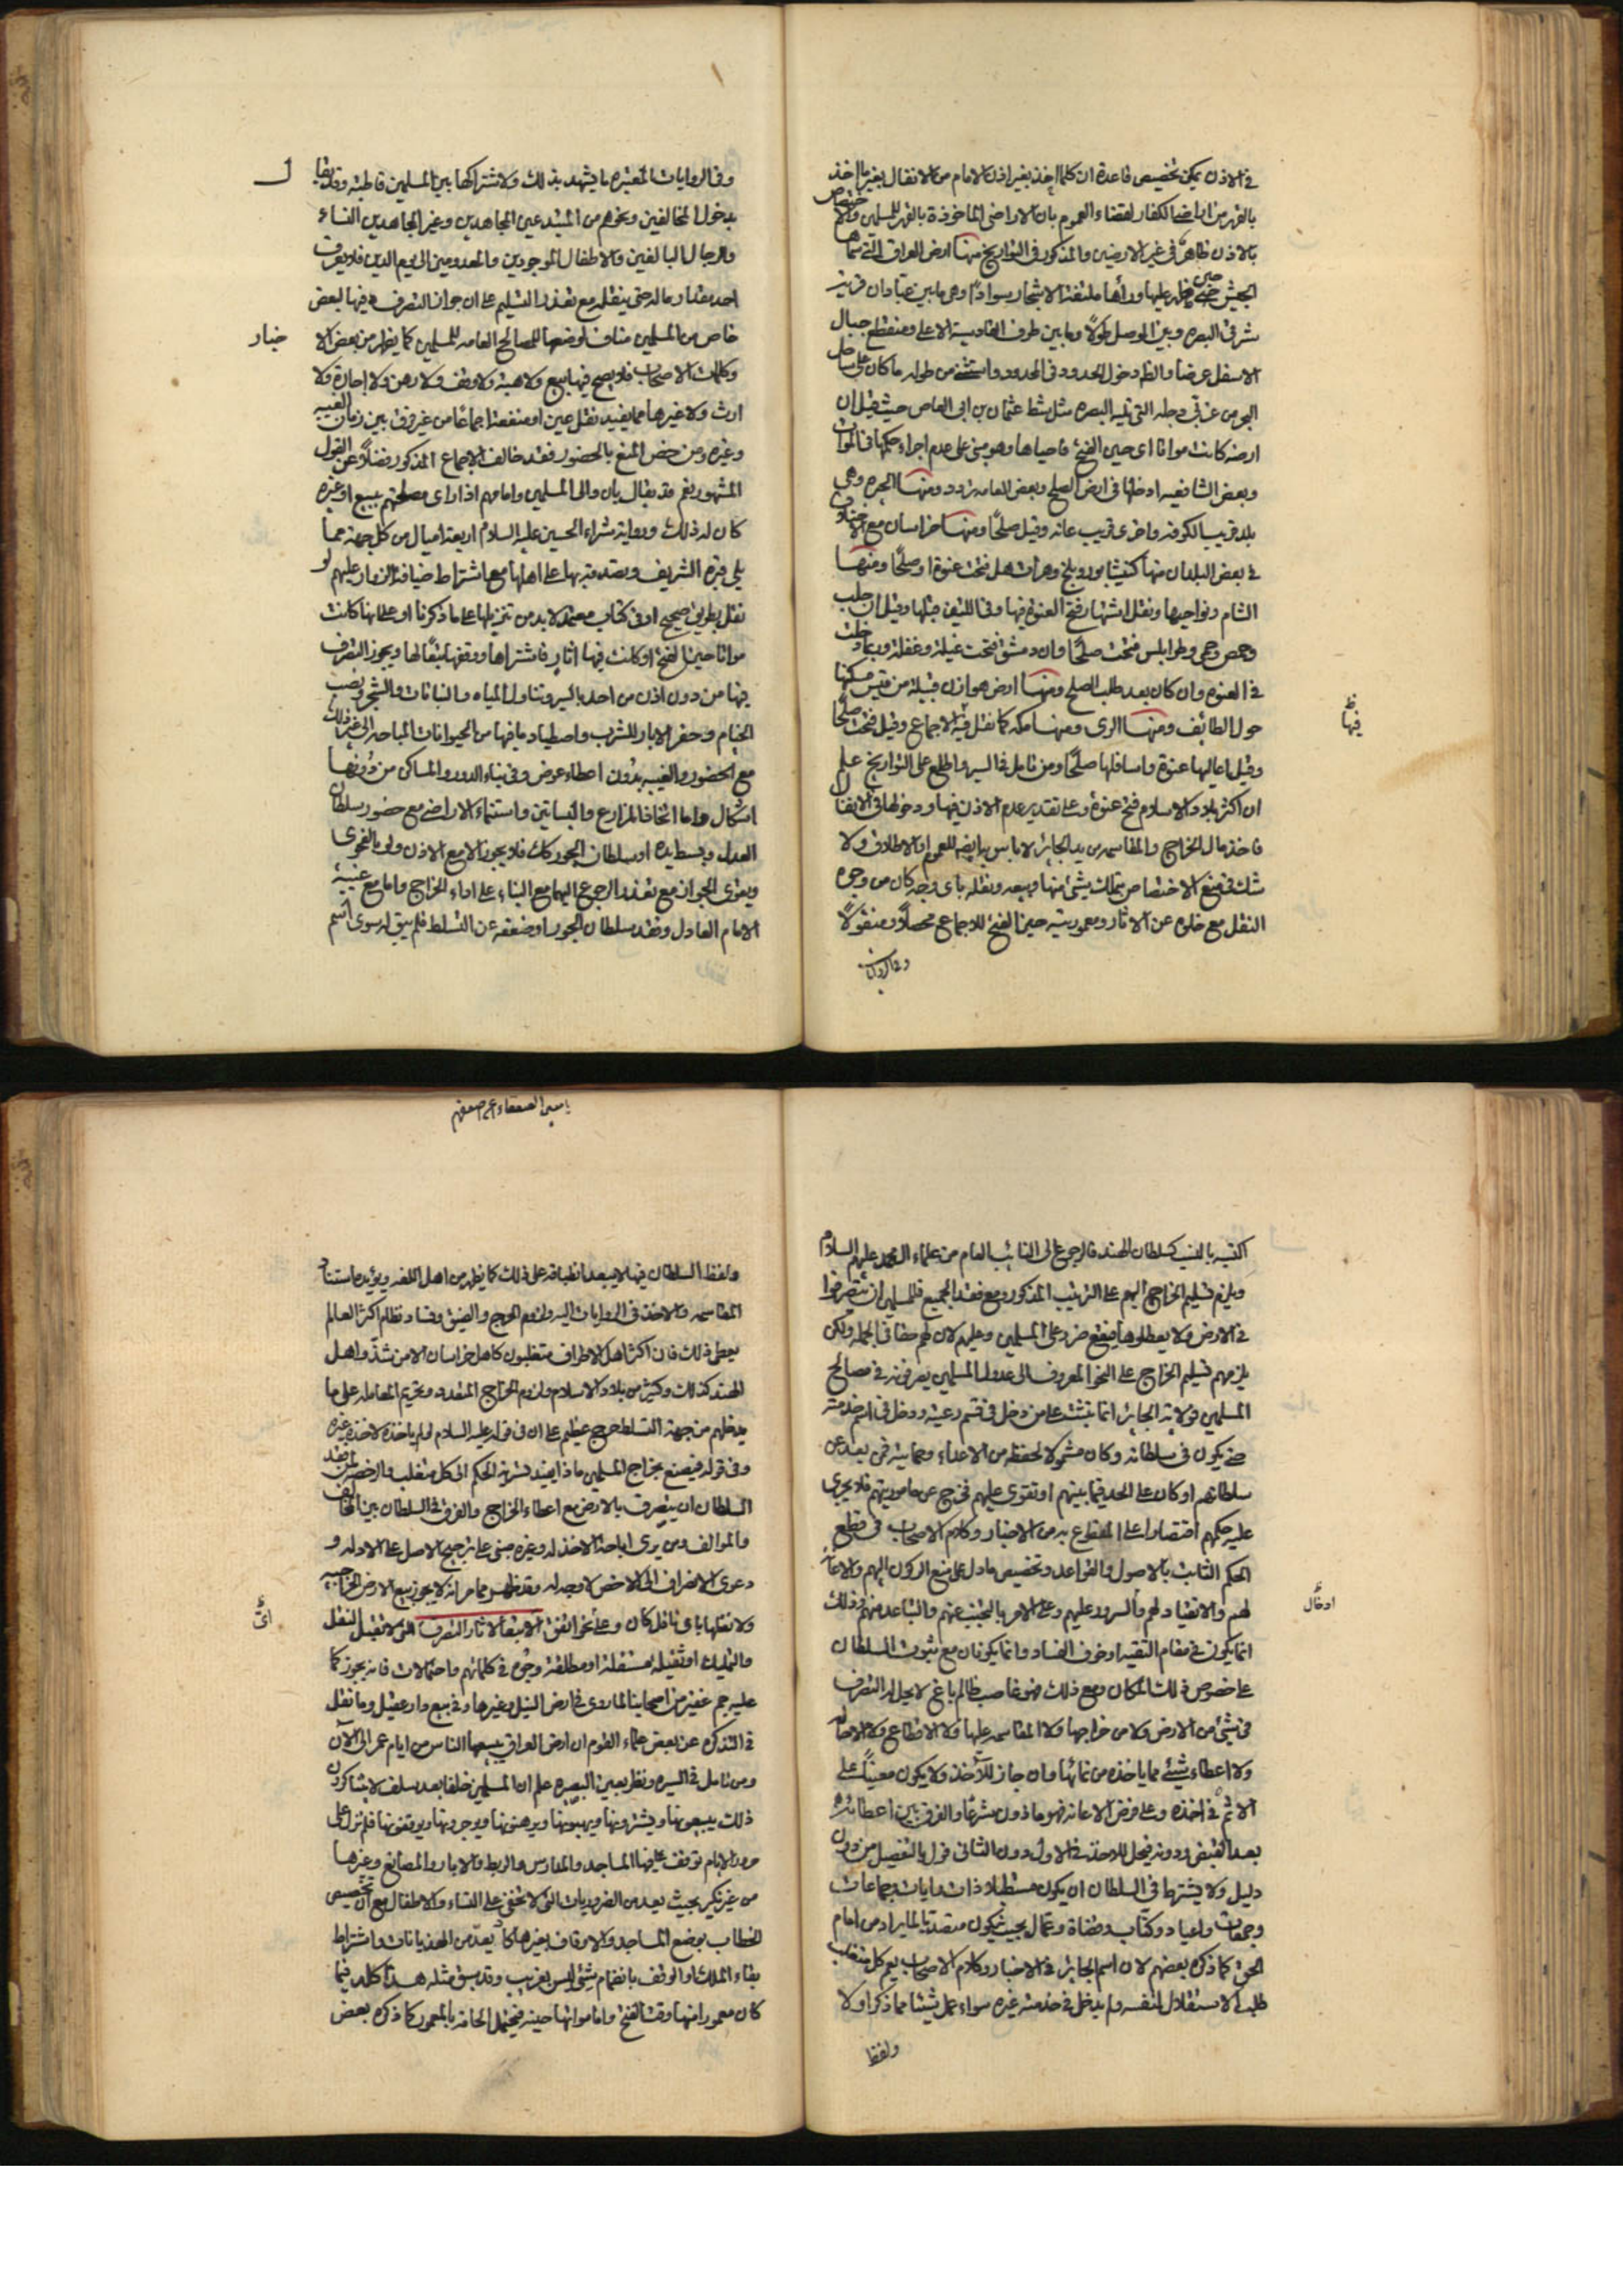 في الاذن يمكن تخصيص قاعدة ان كلما اخذ بغير اذن الامام من الانفال بغير ما اخذ
بالقهر من اراضي الكفار لقضاء العموم بان الاراضي الماخوذة بالقهر للمسلمين والاختصاص
بالاذن ظاهر في غير الارضين والمذكور في التواريخ منها ارض العراق التي سماها
الجيش حين خرج عليها وراها ملتفة الاشجار سوادا وهي ما بين عبادان قرية
شرقي البصره وبين الموصل طولا وما بين طرف القادسية الاعلى ومنقطع جبال
الاسفل عرضا والظ دخول الحدود في المحدود واستثنى من طوله ما كان على ساحل
البحر من شرقي دجله التي تلي البصره مثل شط عثمان بن ابي العاص حيث قيل ان
ارضه كانت مواتا اي حين الفتح فاحياها وهو مبني على عدم اجراء حكمها في الموات
وبعض الشافعيه ادخلها في ارض الصلح وبعض للعامه تردد ومنها الحيره وهي
بلد قريب الكوفه واخرى قريب عانه وقيل صلحا ومنها خراسان مع الاختلاف
في بعض البلدان منها كنيشابور وبلخ وهرات هل فتحت عنوة او صلحا ومنها
الشام ونواحيها ونقل اشتهار فتح العنوة فيها وفي اللتين قبلها وقيل ان حلب
وحمص وحمى وطرابلس فتحت صلحا وان دمشق فتحت غيلة وغفلة وربما دخلت
في العنوه وان كان بعد طلب الصلح ومنها ارض هوازن قبيلة من قيس مسكنها
حول الطائف ومنها الري ومنها مكه كما نقل فيه الاجماع وقيل فتحت صلحا
وقيل اعاليها عنوة واسافلها صلحا ومن تامل في السير واطلع على التواريخ علم
ان اكثر بلاد الاسلام فتح عنوة وعلى تقدير عدم الاذن فيها ودخولها في الانفال
فاخذ مال الخراج والمقاسمه من يد الجائر لا باس به ايضا للعموم او الاطلاق ولا
شك في منع الاختصاص بتملك شيئ منها وبيعه ونقله باي وجه كان من وجوه
النقل مع خلوه عن الاثار ومعموريته حين الفتح للاجماع محصلا ومنقولا
فيها ظ
وفي الروايات
وفي الروايات المعتبره ما يشهد بذلك ولاشتراكها بين المسلمين قاطبة وقد يقا
ل
بدخول المخالفين ونحوهم من المبتدعين المجاهدين وغير المجاهدين النساء
والرجال البالغين والاطفال الموجودين والمعدومين الى يوم الدين فلا يعرف
احد مقدار ماله حتى ينقله مع تعذر التسليم على ان جواز التصرف فيها لبعض
خاص من المسلمين مناف لوضعها للمصالح العامه للمسلمين كما يظهر من بعض الا
خبار
وكلمات الاصحاب فلا يصح فيها بيع ولا هبة ولا وقف ولا رهن ولا اجارة ولا
ارث ولا غيرها مما يفيد نقل عين او منفعة اجماعا من غير فرق بين زمان الغيبه
وغيره ومن خص المنع بالحضور فقد خالف الاجماع المذكور فضلا عن القول
المشهور نعم قد يقال بان والى المسلمين وامامهم اذا راى مصلحتهم ببيع او غيره
كان له ذلك ورواية شراء الحسين عليه السلام اربعة اميال من كل جهة مما
يلي قبره الشريف وتصدقه بها على اهلها مع اشتراط ضيافة الزوار عليهم لو
نقل بطريق صحيح او في كتاب معتمد لابد من تنزيلها على ما ذكرنا او على انها كانت
مواتا حين الفتح او كانت فيها اثار فاشتراها ووقفها تبعا لها ويجوز التصرف
فيها من دون اذن من احد باليسير وتناول المياه والنباتات والشجر ونصب
الخيام وحفر الابار للشرب واصطياد ما فيها من الحيوانات المباحه الى غير ذلك
مع الحضور والغيبه بدون اعطاء عوض وفي بناء الدور والمساكن من دونها
اشكال واما اتخاذ المزارع والبساتين واستنماء الاراضي مع حضور سلطان
العدل وبسط يده او سلطان الجور كك فلا يجوز الا مع الاذن ولو بالفحوى
ويقوى الجواز مع تعذر الرجوع اليهما مع البناء على اداء الخراج واما مع غيبة
الامام العادل وفقد سلطان الجور او ضعفه عن التسلط فلم يبق له سوى اسم
اكتفيه بالنسبه كسلطان الهند فالرجوع الى النائب العام من علماء ال محمد عليهم السلام
ويلزم تسليم الخراج اليهم على الترتيب المذكور ومع فقد الجميع فللمسلمين ان يتصرفوا
في الارض ولا يعطلوها فيقع ضرر على المسلمين وعليهم لان لهم حقا في الجمله ولكن
يلزمهم تسليم الخراج على النحو المعروف الى عدول المسلمين يصرفونه في مصالح
المسلمين فولاية الجائر انما تثبت على من دخل في قسم رعيته ودخل في اسم خدمته
حتى يكون في سلطانه وكان مشمولا لحفظه من الاعداء وحمايته فمن بعد عن
سلطانهم او كان على الحد فيما بينهم او تقوى عليهم فخرج عن مأموريتهم فلا يجري
عليه حكمهم اقتصارا على المقطوع به من الاخبار وكلام الاصحاب في قطع
الحكم الثابت بالاصول والقواعد وتخصيص ما دل على منع الركون اليهم والاعانة
لهم والانقياد لهم والسرور عليهم وعلى الامر بالتجنب عنهم والتباعد منهم وذلك
ادخال
انما يكون في مقام التقيه او خوف الفساد وانما يكونان مع ثبوت السلطان
على خصوص ذلك المكان ومع ذلك فهو غاصب ظالم باغ لا يحل له التصرف
في شيئ من الارض ولا من خراجها ولا المقاسمه عليها ولا الاقطاع ولا الاحاله
ولا اعطاء شيئ مما ياخذه من نمائها وان جاز للآخذ ولا يكون معينا على
الاثم في اخذه وعلى فرض الاعانه فهو ماذون شرعا والفرق بين اعطائه
بعد القبض ودونه فيحل للاخذ في الاول دون الثاني قول بالتفصيل من دون
دليل ولا يشترط في السلطان ان يكون متسلطا ذات رايات وجماعات
وجمعات واعياد وكتاب وقضاة وعمال بحيث يكون متصديا لما يراد من امام
الحق كما ذكره بعضهم لان اسم الجائر في الاخبار وكلام الاصحاب يعم كل متغلب
طلب الاستقلال لنفسه ولم يدخل في خدمة غيره سواء عمل شيئا مما ذكر اولا
ولفظ
ولفظ السلطان فيها لا يبعد انطباقه على ذلك كما يظهر من اهل اللغه ويؤيده استناد
المقاسمه والاخذ في الروايات اليه ولزوم الهرج والضيق وفساد نظام اكثر العالم
يعطى ذلك فان اكثر اهل الاطراف متغلبون كاهل خراسان الا من شذ واهل
الهند كذلك وكثير من بلاد الاسلام ولزوم الخراج المتعدد وتحريم المعامله على ما
يدخلهم من جهة التسلط حرج عظيم على ان في قوله عليه السلام لو لم ياخذه لاخذه غيره
وفي قوله فيصنع بخراج المسلمين ماذا يفيد تسرية الحكم الى كل متغلب والرخصه لمن فقد
السلطان ان يتصرف بالارض مع اعطاء الخراج والفرق في السلطان بين المخالف
والموالف ومن يرى اباحة الاخذ له وغيره مبني على ترجيح الاصل على الادله و
دعوى الانصراف الى الاخص لا وجه له وقد ظهر مما مر انه لا يجوز بيع الارض الخراجيه
ولا نقلها باي ناقل كان وعلى نحو اتفق الا تبعا لاثار التصرف التي لا تقبل النقل
والتمليك او تقبله مستقلة او مطلقة وجوه في كلماتهم واحتمالات فانه يجوز كما
عليه جم غفير من اصحابنا لما روى في ارض النيل وغيرها وفي بيع دار عقيل وما نقل
في التذكره عن بعض علماء القوم ان ارض العراق يبيعها الناس من ايام عمر الى الآن
ومن تامل في السيره ونظر بعين البصيره علم ان المسلمين خلفا بعد سلف لا يتناكرون
ذلك يبيعونها ويشترونها ويهبونها ويرهنونها ويوجرونها ويوقفونها فلم تزل على
مرور الايام توقف عليها المساجد والمدارس والربط والابار والمصانع وغيرها
من غير نكير بحيث يعد من الضروريات التي لا تخفى على النساء والاطفال مع ان تخصيص
الخطاب بوضع المساجد والاوقاف بغيرها كاد يعد من الهذيانات واشتراط
بقاء الملك او الوقف بانضمام شيئ ليس بغريب وقد سبق مثله هذا كله فيما
كان معمورا منها وقت الفتح واما مواتها حينه فيحتمل الحاقه بالمعمور كما ذكره بعض